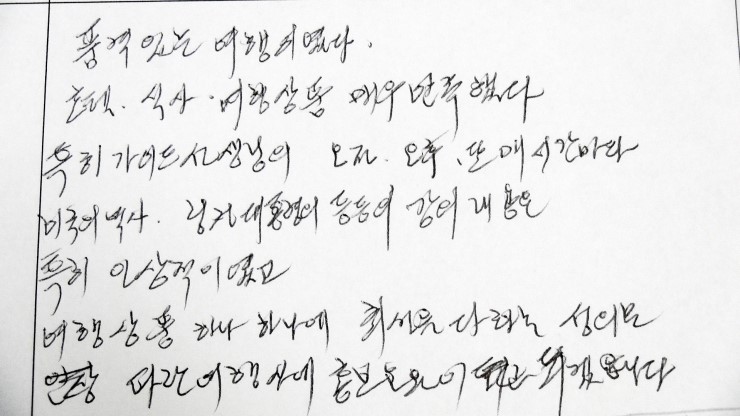 품격있는 여행이였다.
호텔. 식사. 여행상품 매우 만족했다
특히 가이드선생님의 오전. 오후. 또 매시간마다
미국의 역사. 링컨대통령의 등등의 강의 내용은
특히 인상적이였고
여행상품 하나 하나에 최선을 다하는 성의로
타 여행사에 홍보 되겠습니다